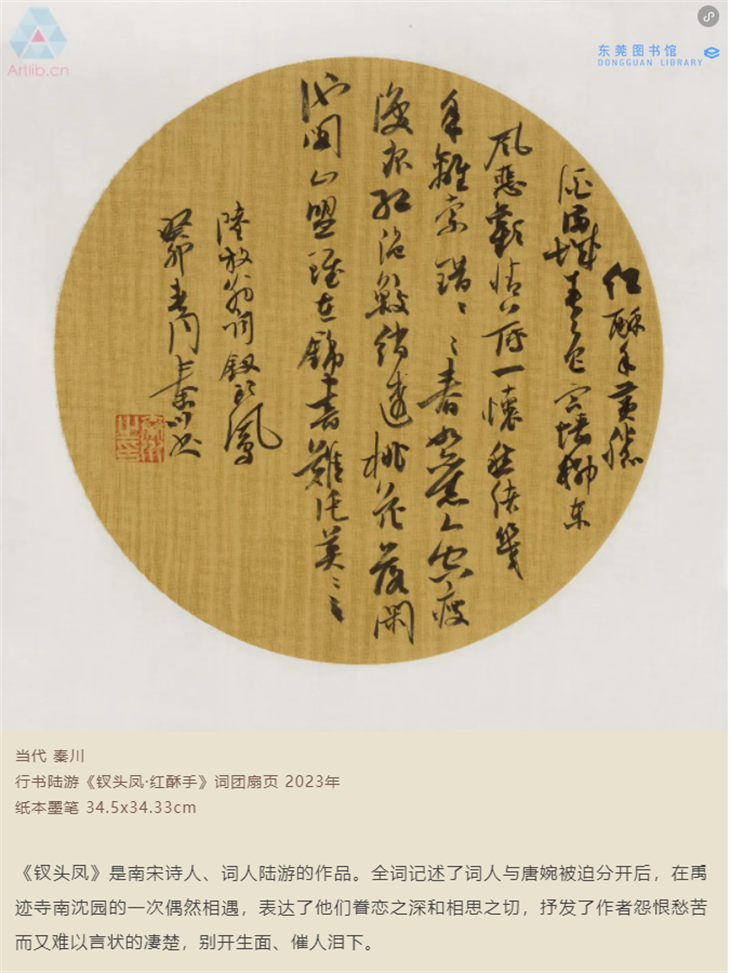 Artlib.cn
东莞图书馆
DONGGUAN LIBRARY
紅酥手黃縢
酒滿城春色宮墻柳東
風惡歡情薄一懷愁緒幾
年離索錯〻〻春如舊人空瘦
淚痕紅浥鮫綃透桃花落閑
池閣山盟雖在錦書難託莫〻〻
陸放翁詞釵頭鳳
癸卯春月秦川書
当代 秦川
行书陆游《钗头凤·红酥手》词团扇页 2023年
纸本墨笔 34.5x34.33cm
《钗头凤》是南宋诗人、词人陆游的作品。全词记述了词人与唐婉被迫分开后，在禹
迹寺南沈园的一次偶然相遇，表达了他们眷恋之深和相思之切，抒发了作者怨恨愁苦
而又难以言状的凄楚，别开生面、催人泪下。